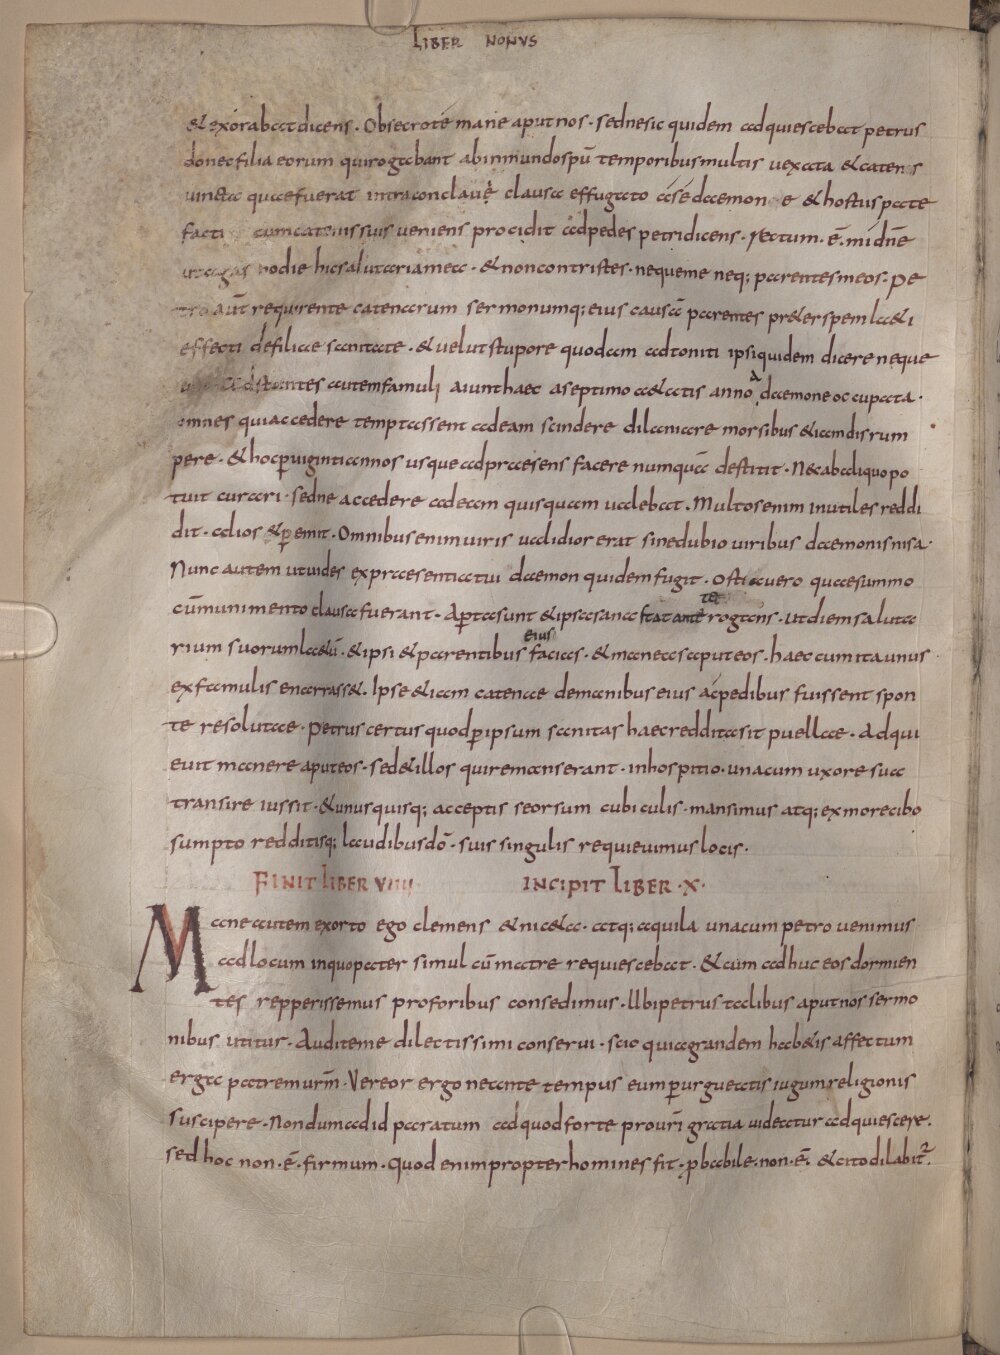 LIBER NONVS
& exorabat dicens . Obsecro te mane aput nos . sed nesic quidem adquiescebat petrus
donec filia eorum qui rogabant ab inmundo spū temporibus multis uexata & catenis
uincta quae fuerat intra conclaue clausa effugato a se daemone & hostiis pate
facti cum catenis suis ueniens procidit ad pedes petri dicens . rectum . ē . mi dn̄e
ut agas hodie hic salutaria mea . & non contristes . neque me neq; parentes meos . Pe
tro aūt requirente catenarum sermonumq; eius causā parentes pr&er spem la&i
effecti de filiae sanitate . & uelut stupore quodam adtoniti ipsi quidem dicere neque
Adstantes autem famuli aiunt haec a septimo a&atis anno a daemone occupata .
omnes qui accedere temptassent ad eam scindere dilaniare morsibus & iam disrum
pere . & hoc p uiginti annos usque ad praesens facere numquā destitit . Nec ab aliquo po
tuit curari . sed ne accedere ad eam quisquam ualebat . Multos enim inutiles reddi
dit . alios & pemit . Omnibus enim uiris ualidior erat sine dubio uiribus daemonis nisa .
Nunc autem ut uides ex praesentia tui daemon quidem fugit . Ostia uero quae summo
cū munimento clausa fuerant . Aptae sunt & ipsa sana stat ante te rogans . ut diem saluta
rium suorum la&ū . & ipsi & parentibus eius facias . & maneas aput eos . haec cum ita unus
ex famulis enarrass& . Ipse & iam catenae de manibus eius ac pedibus fuissent spon
te resolutae . Petrus certus quod p ipsum sanitas haec reddita sit puellae . Adqui
euit manere aput eos . sed & illos qui remanserant . in hospitio . una cum uxore sua
transire iussit . & unusquisq; acceptis seorsum cubiculis . mansimus atq; ex more cibo
sumpto redditisq; laudibus dō . suis singulis requieuimus locis .
FINIT LIBER VIIII INCIPIT LIBER . X .
Mane autem exorto ego clemens & nic&a . atq; aquila una cum petro uenimus
ad locum in quo pater simul cū matre requiescebat . & cum adhuc eos dormien
tes repperissemus pro foribus consedimus . Ubi petrus talibus aput nos sermo
nibus utitur . Audite me dilectissimi conserui . scio quia grandem hab&is affectum
erga patrem urm̄ . Vereor ergo ne ante tempus eum purgueatis iugum religionis
suscipere . Nondum ad id paratum ad quod forte pro uri gratia uideatur adquiescere .
sed hoc non . ē . firmum . Quod enim propter homines fit . pbabile . non . ē . & cito dilabitr .